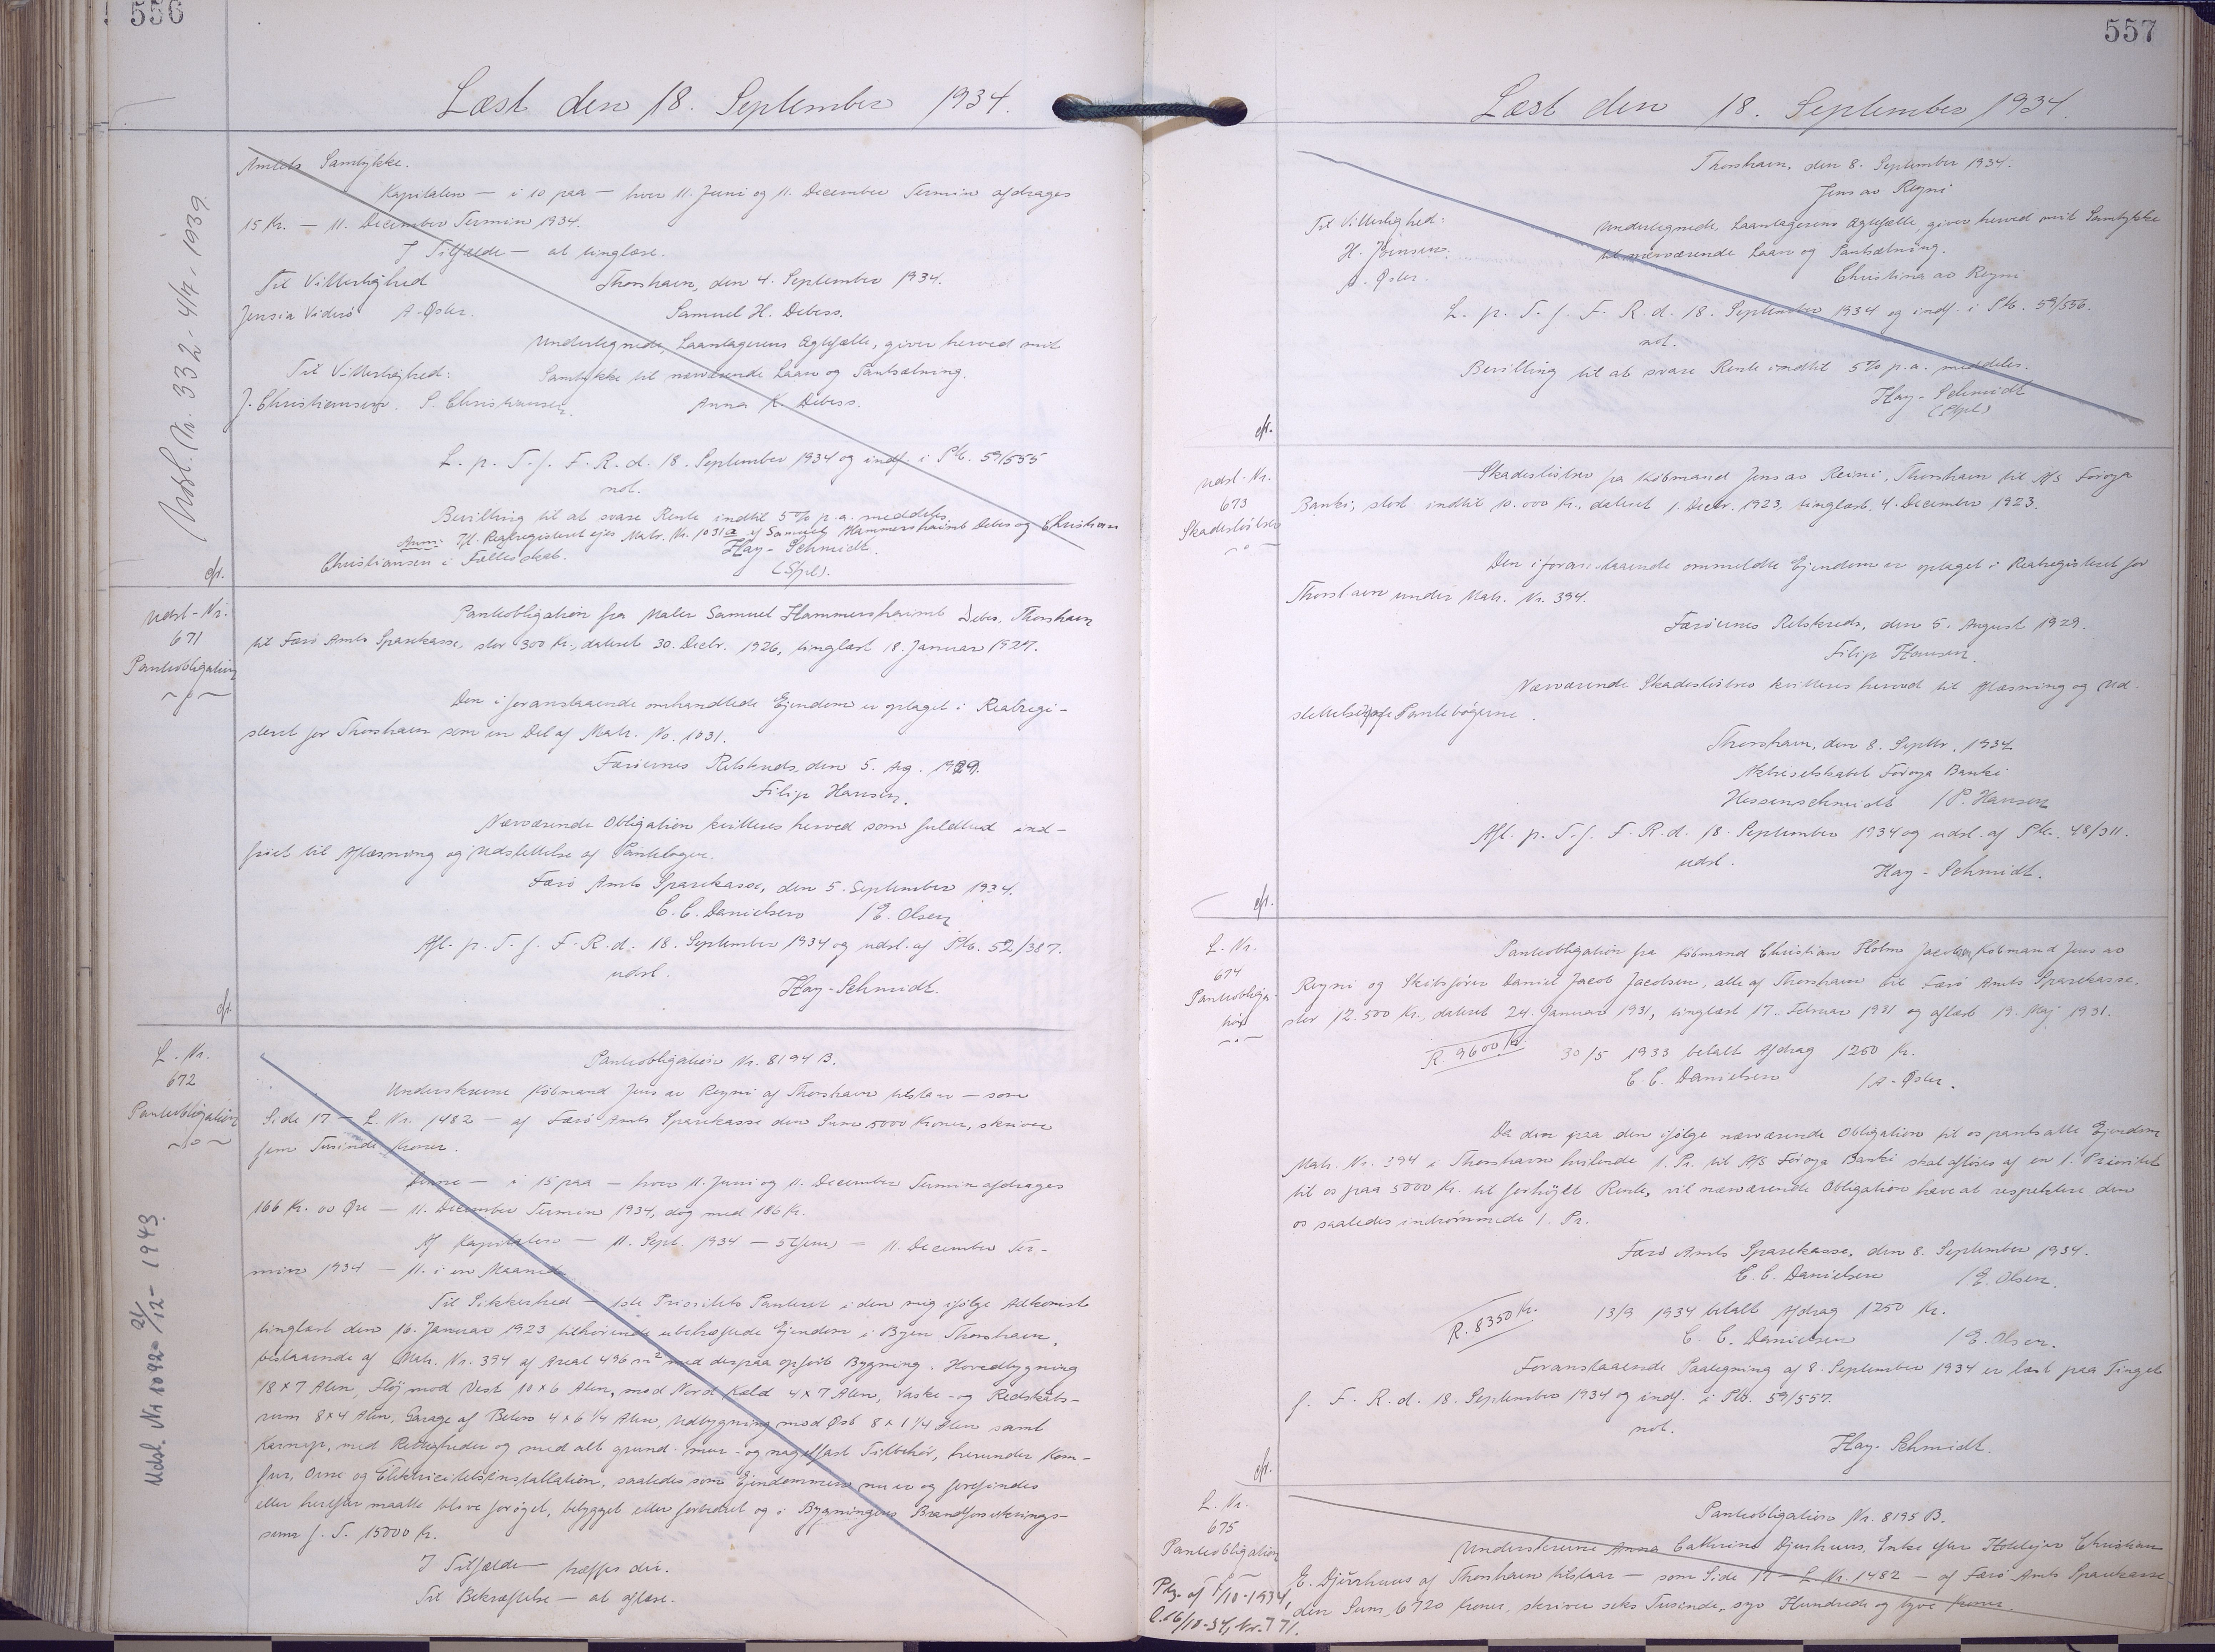 556
Læst den 18. September 1934.
Udsl. Nr. 332. 4/7. 1939.
Amtets Samtykke.
Kapitalen — i 10 paa — hver 11. Juni og 11. December Termin afdrages
15 Kr. — 11. December Termin 1934.
I Tilfælde — at tinglæse.
Til Vitterlighed
Thorshavn, den 4. September 1934.
Jensia Viderö A. Øster.
Samuel H. Debess.
Undertegnede, Laantagerens Ægtefælle, giver herved mit
Til Vitterlighed:
Samtykke til nærværende Laan og Pantsætning.
J. Christiansen. S. Christiansen.
Anna K. Debess.
L. p. T. f. F. R. d. 18. September 1934 og indf. i Pb. 59/555
not.
Bevilling til at svare Rente indtil 5% p. a. meddeles.
Anm: Ifl. Realregisteret ejes Matr. Nr. 1031a af Samuel Hammershaimb Debes og Christian
Christiansen i Fællesskab.
Hay-Schmidt.
(Stpl.)
cfr.
Udsl-Nr.
671
Panteobligation
Panteobligation fra Maler Samuel Hammershaimb Debes, Thorshavn
til Færø Amts Sparekasse, stor 300 Kr., dateret 30. Decbr. 1926, tinglæst 18. Januar 1927.
Den i foranstaaende omhandlede Ejendom er optaget i Realregi-
steret for Thorshavn som en Del af Matr. No. 1031.
Færøernes Retskreds, den 5. Aug. 1929.
Filip Hansen.
Nærværende Obligation kvitteres herved som fuldtud ind-
friet til Aflæsning og Udslettelse af Pantebogen.
Færö Amts Sparekasse, den 5. September 1934.
C. C. Danielsen /E. Olsen
Afl. p. T. f. F. R. d. 18. September 1934 og udsl. af Pb. 52/387.
udsl.
Hay-Schmidt.
cfr.
L. Nr.
672
Panteobligation
Udsl. Nr 1092 21/12 - 1943.
Panteobligation Nr. 8194 B.
Underskrevne Købmand Jens av Reyni af Thorshavn tilstaar — som
Side 17 — L. Nr. 1482 — af Færö Amts Sparekasse den Sum 5000 Kroner, skriver
fem Tusinde Kroner.
Denne — i 15 paa — hver 11. Juni og 11. December Termin afdrages
166 Kr. 00 Øre — 11. December Termin 1934, dog med 186 Kr.
Af Kapitalen — 11. Sept. 1934 — 5 (fem) — 11. December Ter-
min 1934 — 11. i en Maaned
Til Sikkerhed — 1ste Prioritets Panteret i den mig ifølge Adkomst
tinglæst den 16. Januar 1923 tilhørende ubehæftede Ejendom i Byen Thorshavn,
bestaaende af Matr. Nr. 394 af Areal 496 m² med derpaa opført Bygning. Hovedbygning
18 x 7 Alen, Fløj mod Vest 10 x 6 Alen, mod Nord Kold 4 x 7 Alen, Vaske- og Redskabs-
rum 8 x 4 Alen, Garage af Beton 4 x 6 1/4 Alen, Udbygning mod Øst 8 x 1 1/4 Alen samt
Karnap, med Rettigheder og med alt grund- mur- og nagelfast Tilbehør, herunder Kom-
fur, Ovne og Elektricitetsinstallation, saaledes som Ejendommen nu er og forefindes
eller herefter maatte blive forøget, bebygget eller forbedret og i Bygningens Brandforsikrings-
sum f. T. 15000 Kr.
I Tilfælde — træffes der.
Til Bekræftelse — at aflæse.
557
Læst den 18. September 1934.
Thorshavn, den 8. September 1934.
Jens av Reyni
Til Vitterlighed:
Undertegnede, Laantagerens Ægtefælle, giver herved mit Samtykke
H. Jensen.
til nærværende Laan og Pantsætning.
A. Øster.
Christina av Reyni
L. p. T. f. F. R. d. 18. September 1934 og indf. i Pb. 59/556.
not.
Bevilling til at svare Rente indtil 5% p. a. meddeles.
Hay-Schmidt
(Stpl.)
cfr.
Udsl-Nr.
673
Skadesløsbrev
Skadesløsbrev fra Købmand Jens av Reini, Thorshavn til A/S Føroya
Banki, stort indtil 10.000 Kr., dateret 1. Decbr. 1923, tinglæst 4. December 1923.
Den i foranstaaende ommeldte Ejendom er optaget i Realregisteret for
Thorshavn under Matr. Nr. 394.
Færøernes Retskreds, den 5. August 1929.
Filip Hansen.
Nærværende Skadesløsbrev kvitteres herved til Aflæsning og Ud-
slettelse af Pantebøgerne.
Thorshavn, den 8. Septbr. 1934
Aktieselskabet Føroya Banki
Hessenschmidt /P. Hansen
Afl. p. T. f. F. R. d. 18. September 1934 og udsl. af Pb. 48/311.
udsl.
Hay-Schmidt.
cfr.
L. Nr.
674
Panteobliga-
tion
Panteobligation fra Købmand Christian Holm Jacobsen, Købmand Jens av
Reyni og Skibsfører Daniel Jacob Jacobsen, alle af Thorshavn til Færø Amts Sparekasse,
stor 12.500 Kr., dateret 24. Januar 1931, tinglæst 17. Februar 1931 og aflæst 19. Maj 1931.
R. 9600 Kr. 30/5 1933 betalt Afdrag 1250 Kr.
C. C. Danielsen /A. Øster.
Da den paa den ifølge nærværende Obligation til os pantsatte Ejendom
Matr. Nr. 394 i Thorshavn hvilende 1. Pr. til A/S Føroya Banki skal afløses af en 1. Prioritet
til os paa 5000 Kr. til forhøjet Rente, vil nærværende Obligation have at respektere den
os saaledes indrømmede 1. Pr.
Færö Amts Sparekasse, den 8. September 1934.
C. C. Danielsen /E. Olsen.
R. 8350 Kr. 13/9 1934 betalt Afdrag 1250 Kr.
C. C. Danielsen /E. Olsen.
Foranstaaende Paategning af 8. September 1934 er læst paa Tinget
f. F. R. d. 18. September 1934 og indf. i Pb. 59/557.
not.
Hay-Schmidt.
cfr.
L. Nr.
675
Panteobligation
Ptg. af 1/10-1934,
l. 16/10-34, Nr. 771.
Panteobligation Nr. 8195 B.
Underskrevne Anna Cathrine Djurhuus, Enke efter Christian
E. Djurhuus af Thorshavn tilstaar — som Side 17 — L. Nr. 1482 — af Færø Amts Sparekasse
den Sum 6720 Kroner, skriver seks Tusinde, syv Hundrede og tyve Kroner.